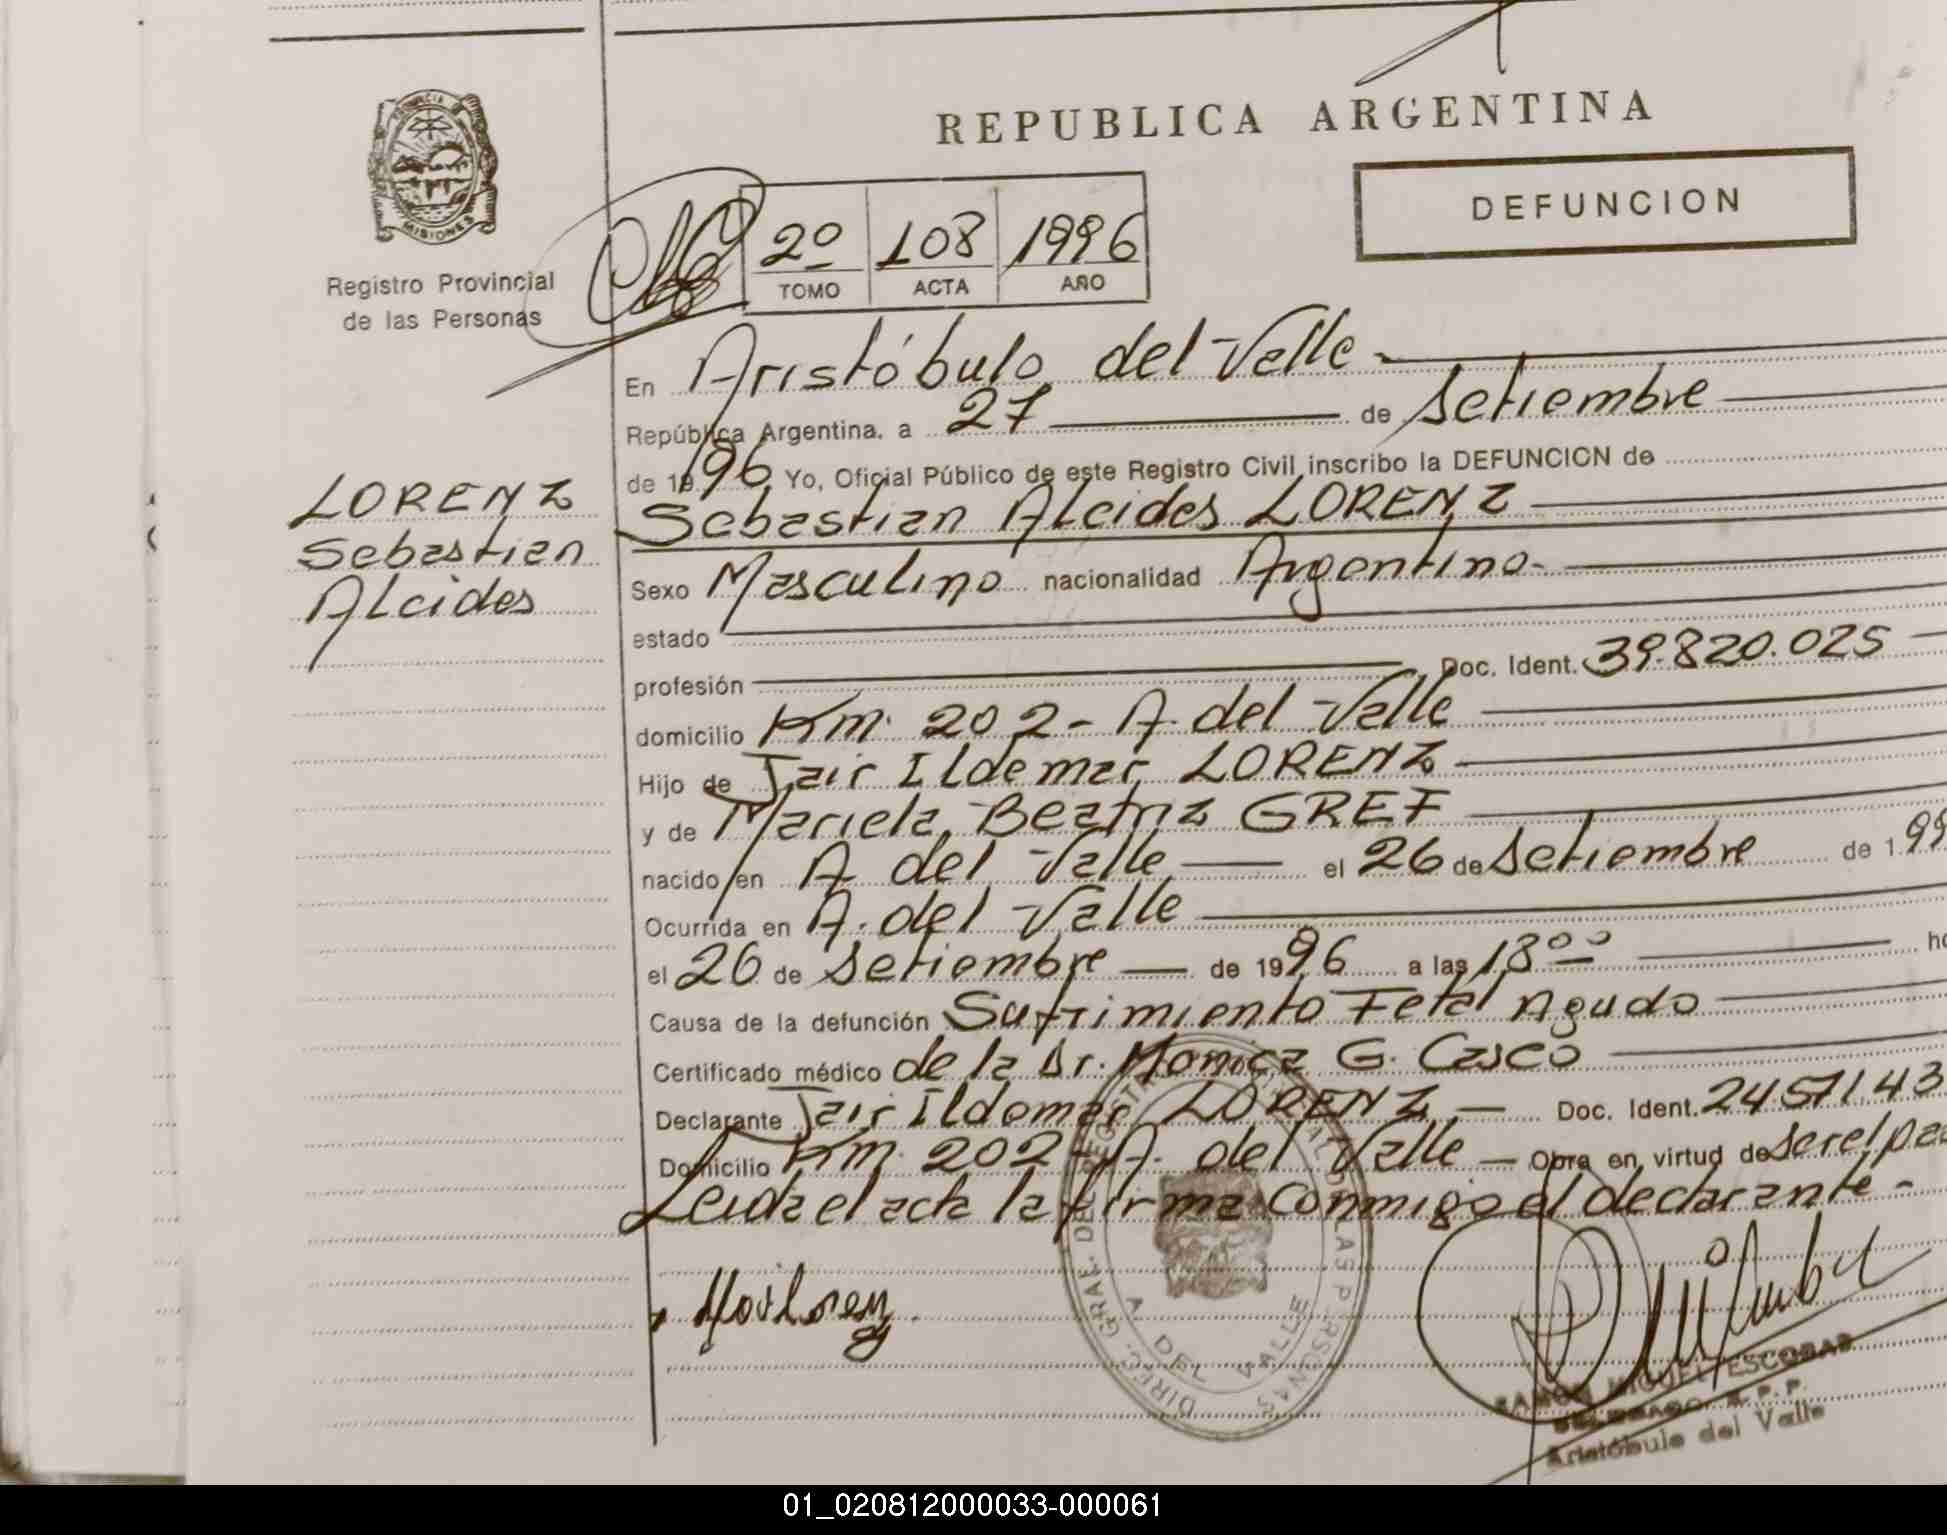 REPUBLICA ARGENTINA
DEFUNCION
PROVINCIA DE
MISIONES
Registro Provincial
de las Personas
2º 108 1996
TOMO ACTA AÑO
En Aristóbulo del Valle
República Argentina, a 27 de Setiembre
de 1996 Yo, Oficial Público de este Registro Civil inscribo la DEFUNCION de
LORENZ
Sebastian
Alcides
Sebastian Alcides LORENZ
Sexo Masculino nacionalidad Argentino
estado
profesión Doc. Ident. 39.820.025
domicilio Km. 202 - A. del Valle
Hijo de Jair Ildemar LORENZ
y de Mariela Beatriz GREF
nacido en A del Valle el 26 de Setiembre de 199
Ocurrida en A. del Valle
el 26 de Setiembre de 1996 a las ho
Causa de la defunción Sufrimiento Fetal Agudo
Certificado médico de la Dr. Monica G. Casco
Declarante Jair Ildemar LORENZ - Doc. Ident. 2457143
Domicilio Km. 202 - A. del Valle - Obra en virtud de ser el pa
Leida el acta la firma conmigo el declarante -
DIREC. GRAL. DEL REGISTRO DE LAS PERSONAS
A DEL VALLE
RAMON MIGUEL ESCOBAR
DELEGADO R.P.P.
Aristóbulo del Valle
01_020812000033-000061